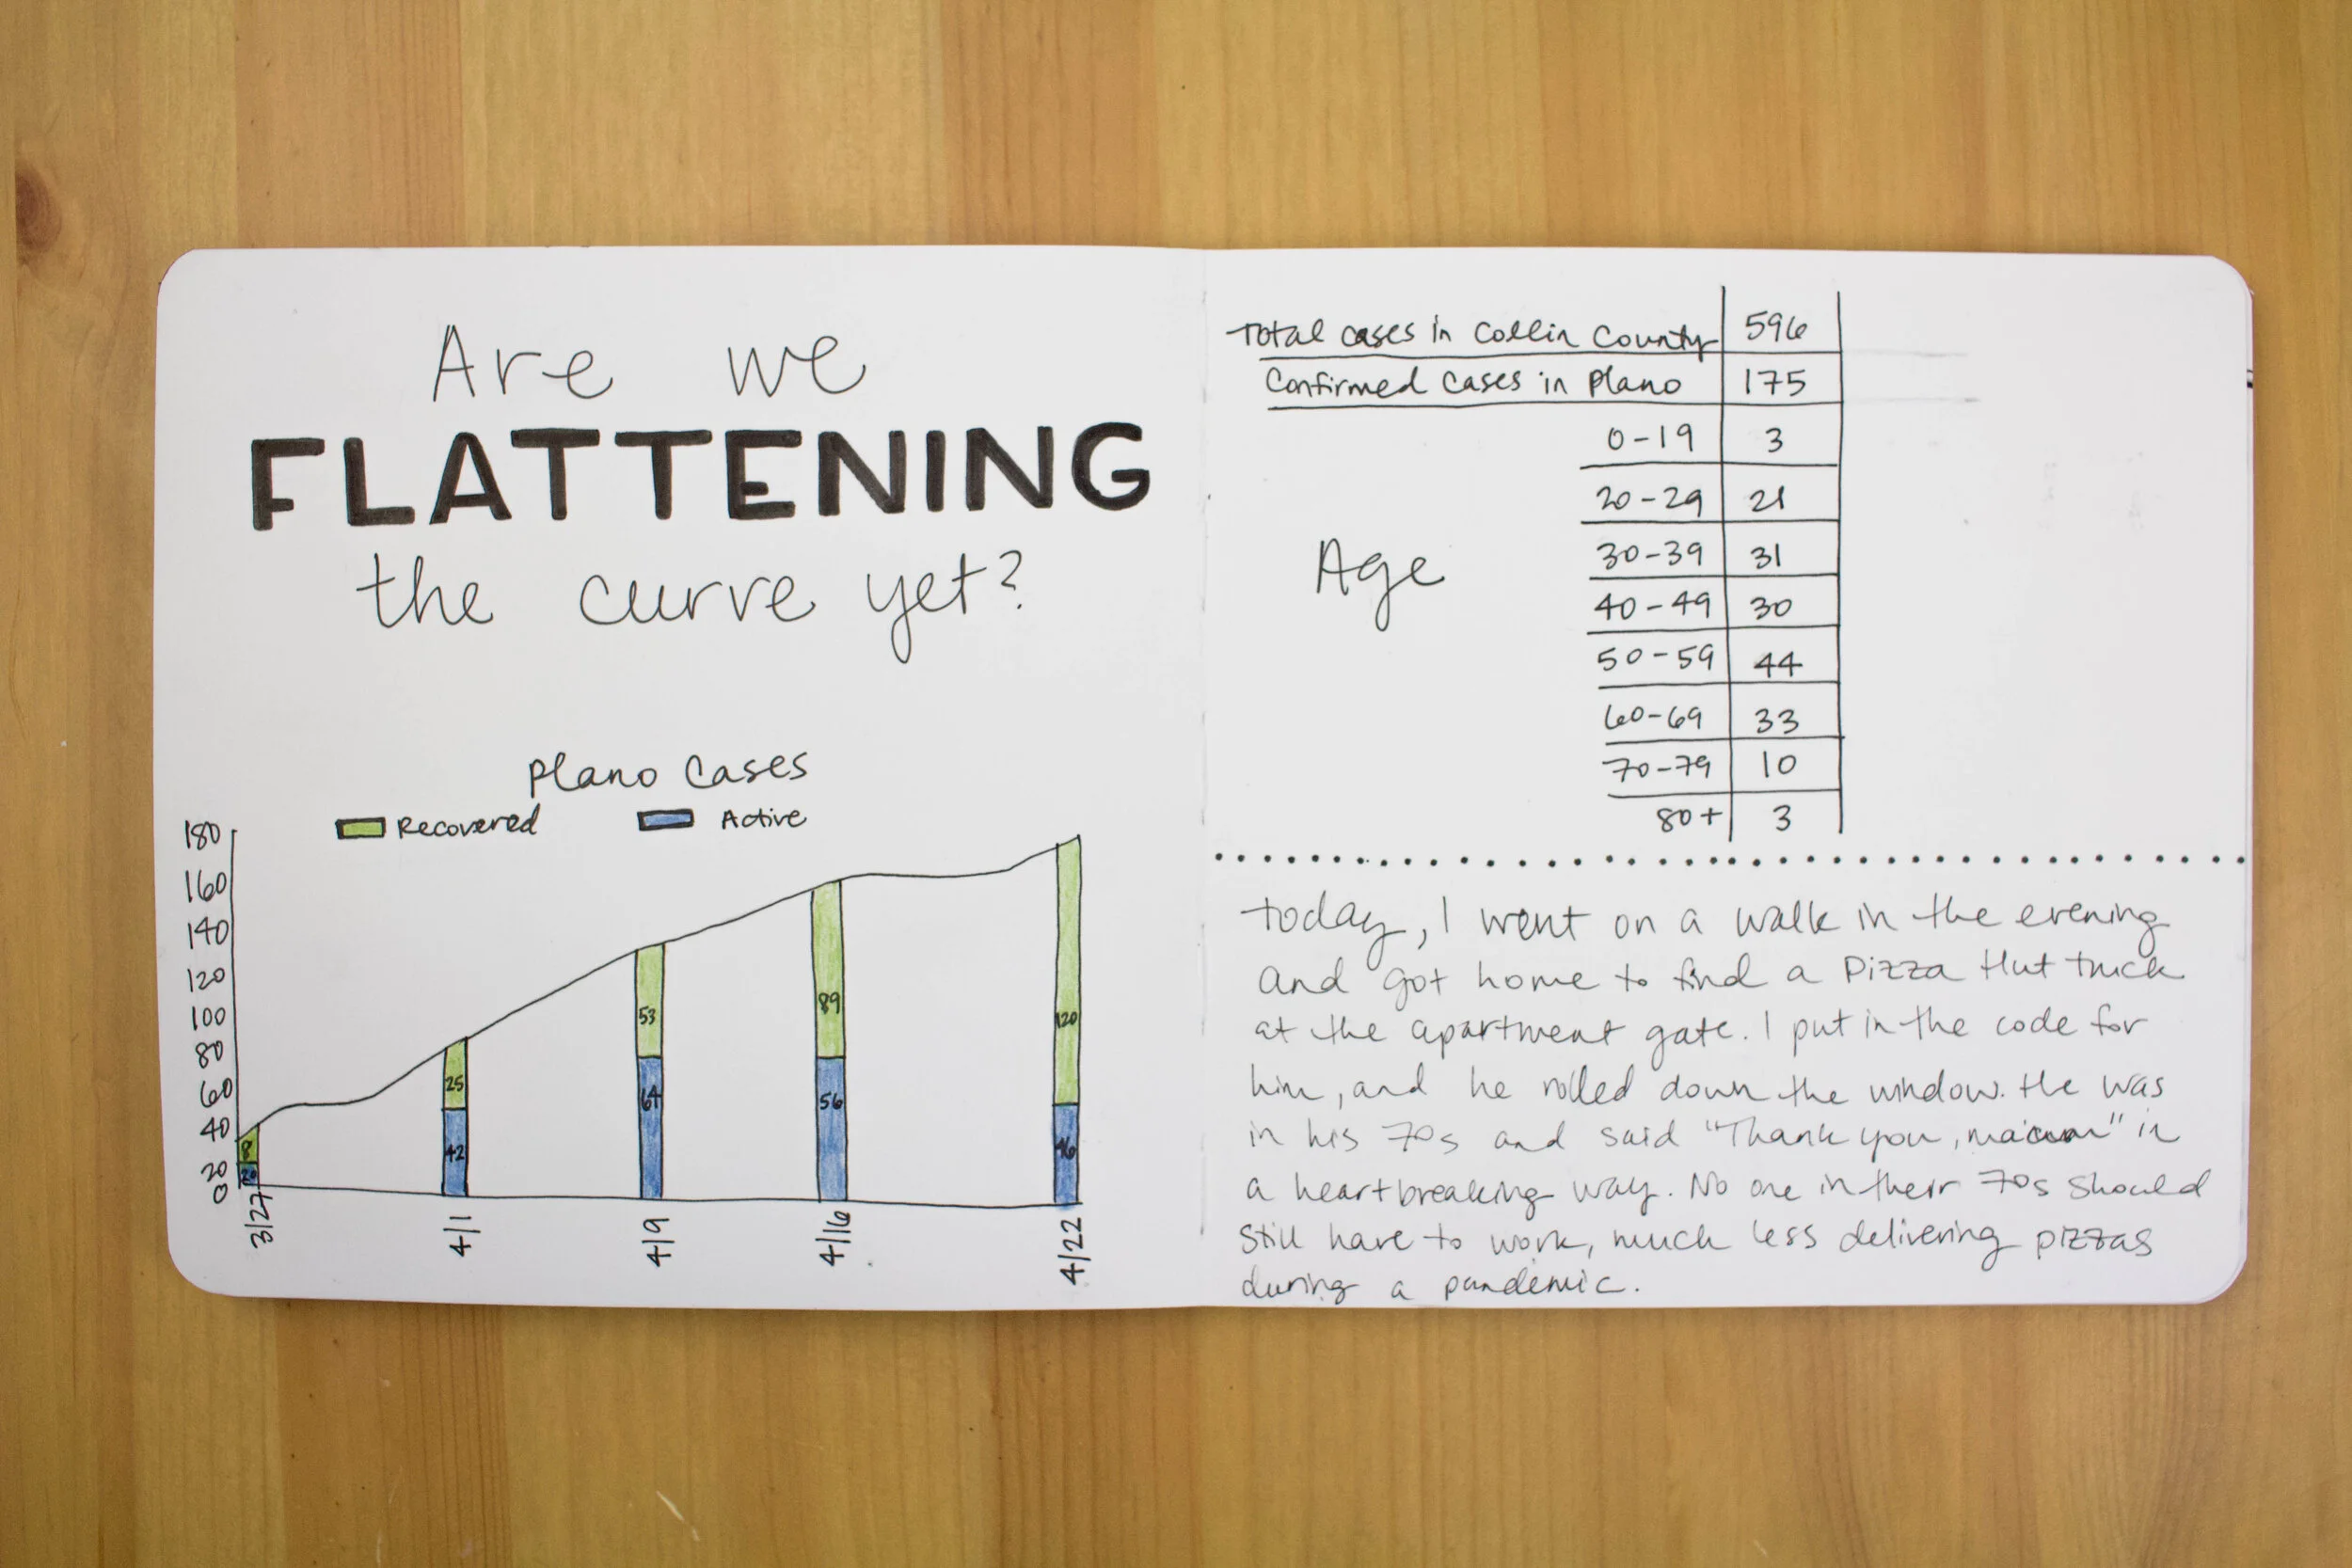 Are we
FLATTENING
the curve yet?
Plano Cases
Recovered Active
180
160
140
120
100
80
60
40
20
0
8
20
25
42
53
64
89
56
120
46
3/27
4/1
4/9
4/16
4/22
Total cases in Collin County 596
Confirmed Cases in Plano 175
Age
0-19 3
20-29 21
30-39 31
40-49 30
50-59 44
60-69 33
70-79 10
80+ 3
today, I went on a walk in the evening
and got home to find a Pizza Hut truck
at the apartment gate. I put in the code for
him, and he rolled down the window. He was
in his 70s and said "Thank you, ma'am" in
a heartbreaking way. No one in their 70s should
still have to work, much less delivering pizzas
during a pandemic.